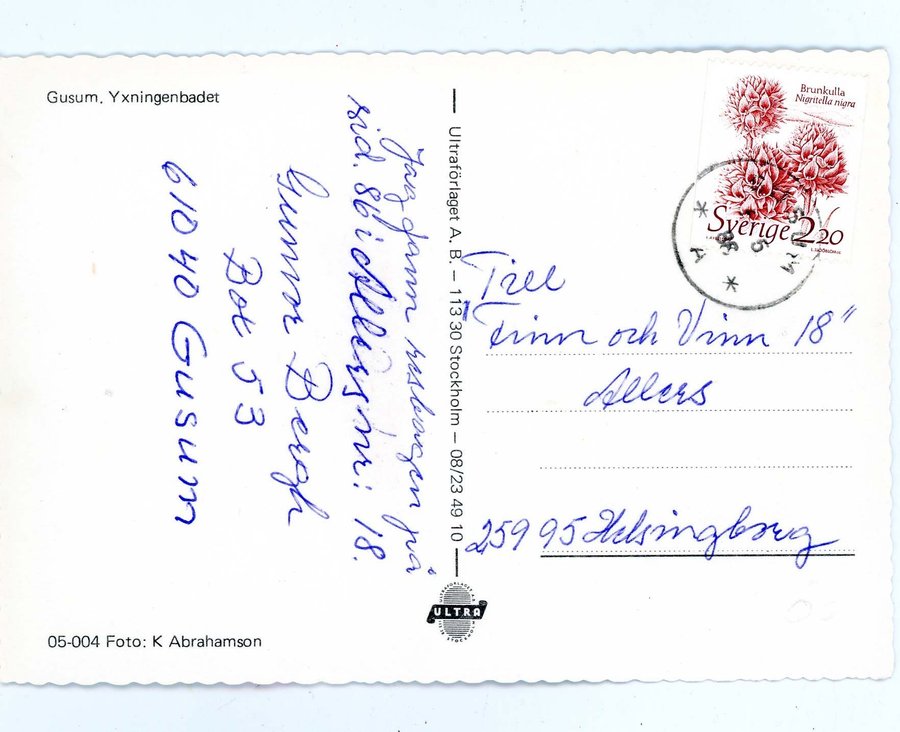 Gusum, Yxningenbadet
Jag fann resvägen på
sid. 86 i Allers nr: 18.
Gunvor Bergh
Box 53
61040 Gusum
05-004 Foto: K Abrahamson
Ultraförlaget A.B. – 113 30 Stockholm – 08/23 49 10
ULTRAFÖRLAGET AB
ULTRA
STOCKHOLM
Brunkulla
Nigritella nigra
Sverige 220
GUSUM
5
86
* A *
Till
"Finn och Vinn 18"
Allers
25995 Helsingborg